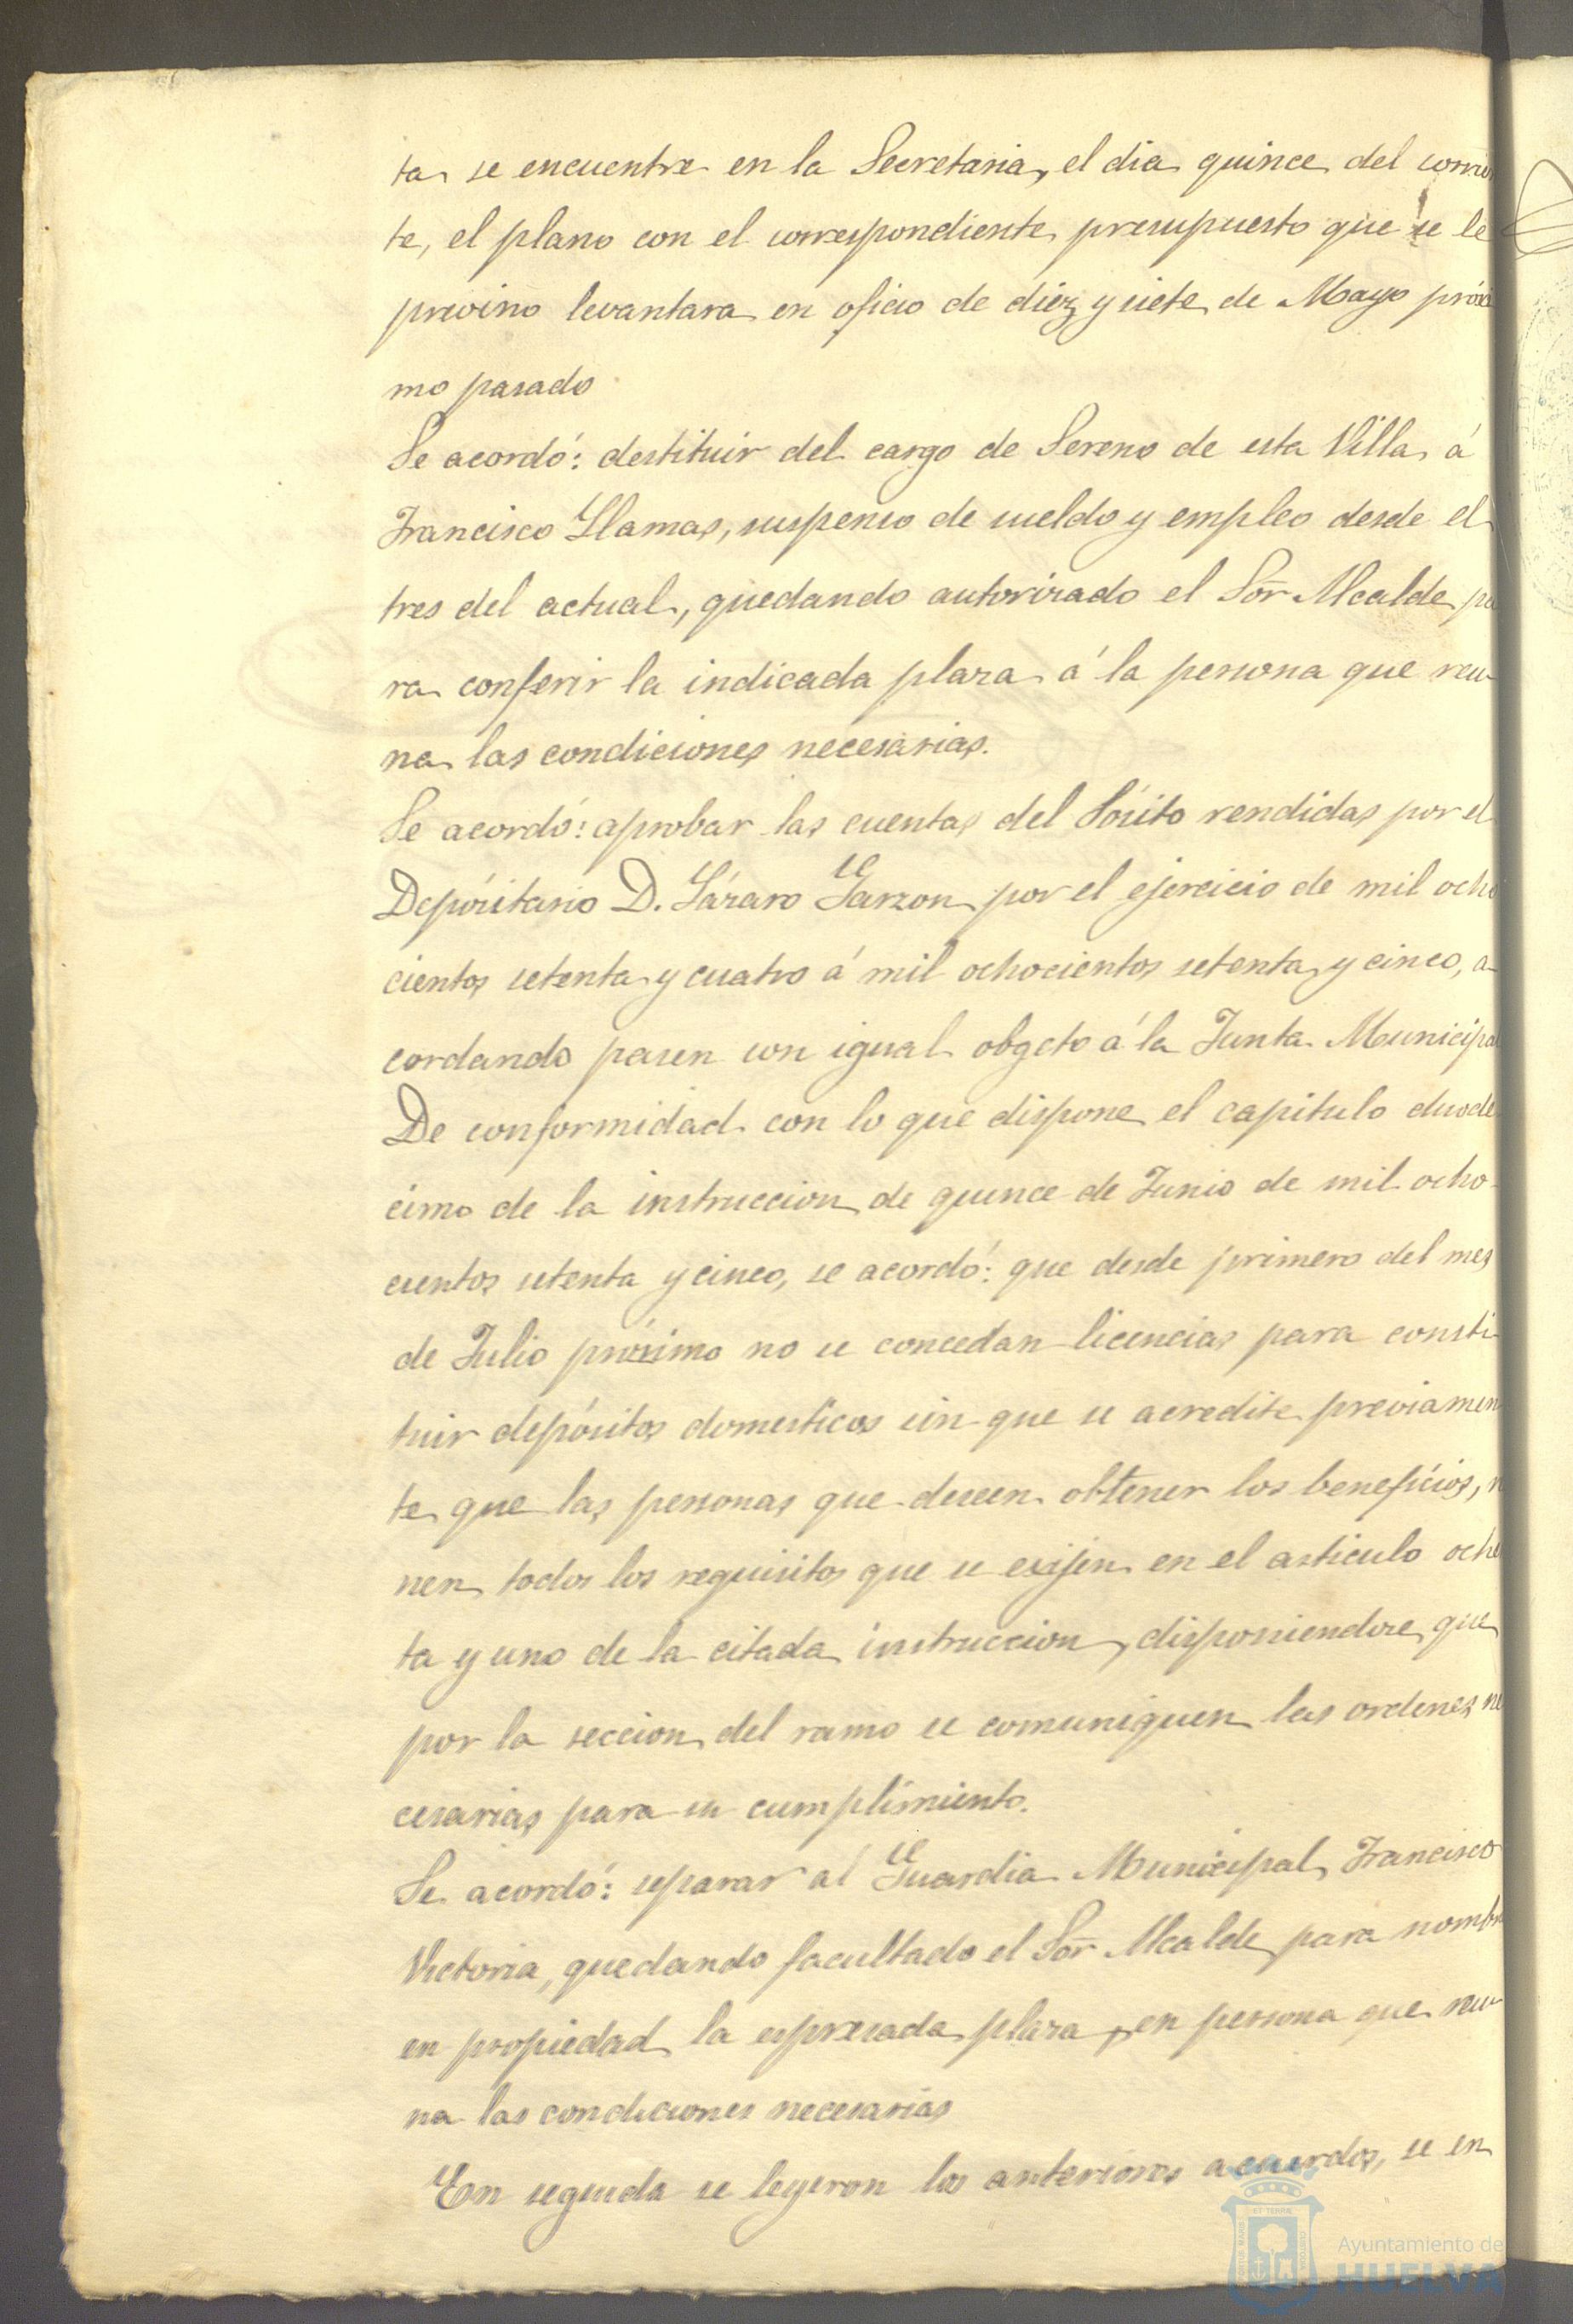 ta se encuentre en la Secretaria, el dia quince del corrien
te, el plano con el correspondiente presupuesto que se le
previno levantara en oficio de diez y siete de Mayo próxi
mo pasado
Se acordó: destituir del cargo de Sereno de esta Villa á
Francisco Llamas, suspenso de sueldo y empleo desde el
tres del actual, quedando autorizado el Sōr Alcalde pa
ra conferir la indicada plaza á la persona que reu-
na las condiciones necesarias.
Se acordó: aprobar las cuentas del Pósito rendidas por el
Depósitario D. Lázaro Garzon por el ejercicio de mil ocho
cientos setenta y cuatro á mil ochocientos setenta y cinco, a-
cordando pasen con igual obgeto á la Junta Municipal
De conformidad con lo que dispone el capitulo duode
cimo de la instruccion de quince de Junio de mil ocho-
cientos setenta y cinco, se acordó: que desde primero del mes
de Julio prósimo no se concedan licencias para consti-
tuir depósitos domesticos sin que se acredite previamen
te que las personas que deseen obtener los beneficios, r
nen todos los requisitos que se exijen en el articulo oche
ta y uno de la citada instruccion, disponiendose que
por la seccion del ramo se comuniquen las ordenes ne
cesarias para su cumplimiento.
Se acordó: separar al Guardia Municipal Francisco
Victoria, quedando facultado el Sōr Alcalde para nombr
en propiedad la espresada plaza, en persona que reu-
na las condiciones necesarias
En seguida se leyeron los anteriores acuerdos, se en
Ayuntamiento de
HUELVA